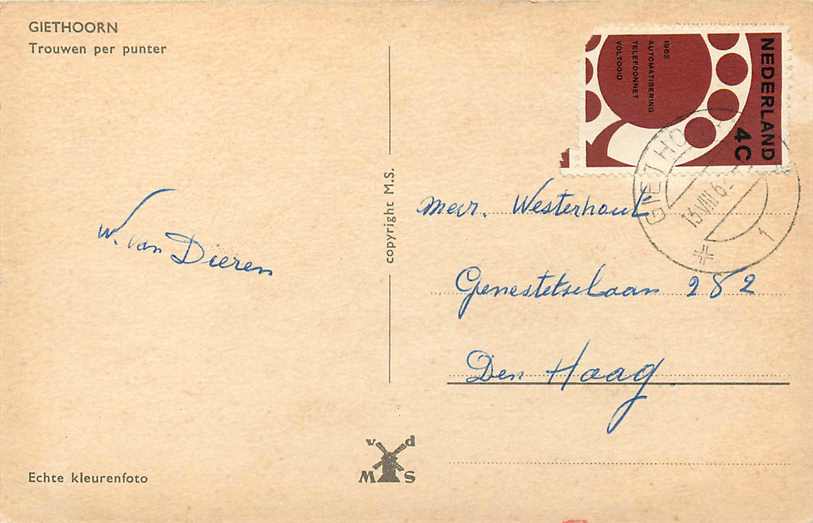 GIETHOORN
Trouwen per punter
W. van Dieren
Echte kleurenfoto
copyright M.S.
v d
M S
NEDERLAND
4C
1962
AUTOMATISERING
TELEFOONNET
VOLTOOID
GIETHO
13 VIII 6
1
Westerhout
Genestetselaan 282
Den Haag